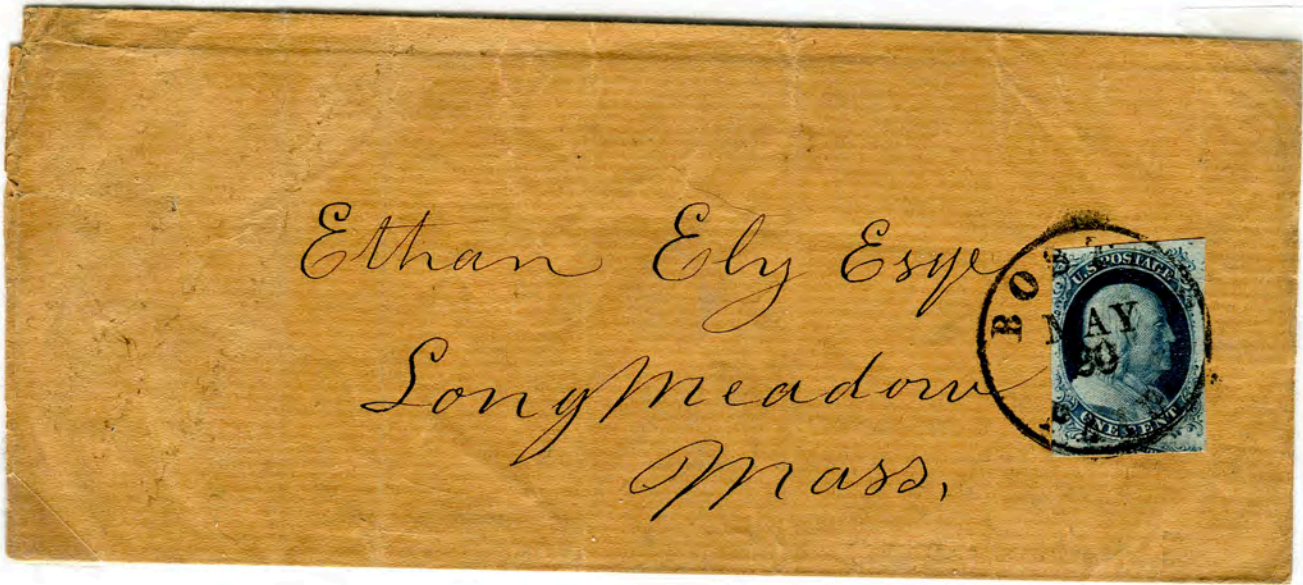 Ethan Ely Esqr
LongMeadow
Mass.
BOS
MAY
U.S. POSTAGE
ONE CENT